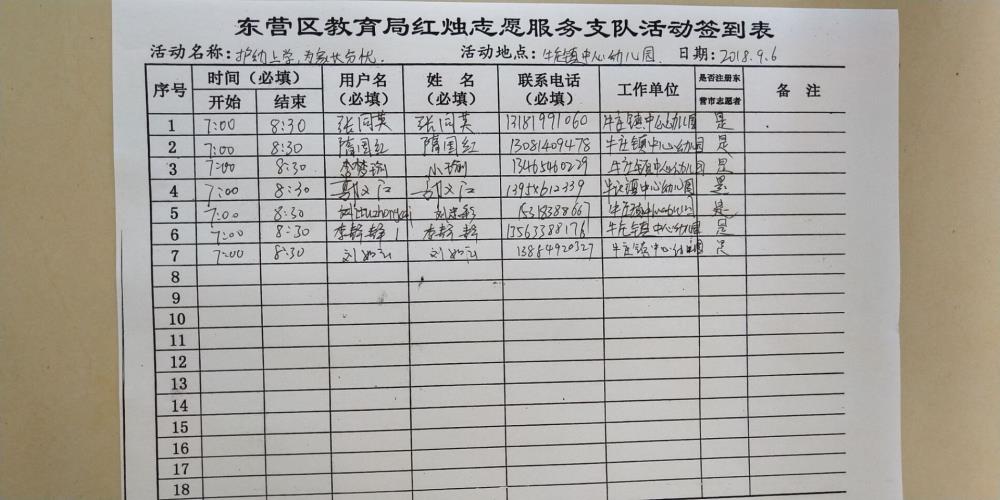 东营区教育局红烛志愿服务支队活动签到表
活动名称:护幼上学,为家长分忧. 活动地点:牛庄镇中心幼儿园 日期:2018.9.6
序号 时间(必填) 用户名(必填) 姓名(必填) 联系电话(必填) 工作单位 是否注册东营市志愿者 备注
开始 结束
1 7:00 8:30 张同英 张同英 13181991060 牛庄镇中心幼儿园 是
2 7:00 8:30 隋国红 隋国红 13081409478 牛庄镇中心幼儿园 是
3 7:00 8:30 13465460229 牛庄镇中心幼儿园 是
4 7:00 8:30 牛庄镇中心幼儿园 是
5 7:00 8:30 牛庄镇中心幼儿园 是
6 7:00 8:30 13563388176 牛庄镇中心幼儿园 是
7 7:00 8:30 13854920327 牛庄镇中心幼儿园 是
8
9
10
11
12
13
14
15
16
17
18